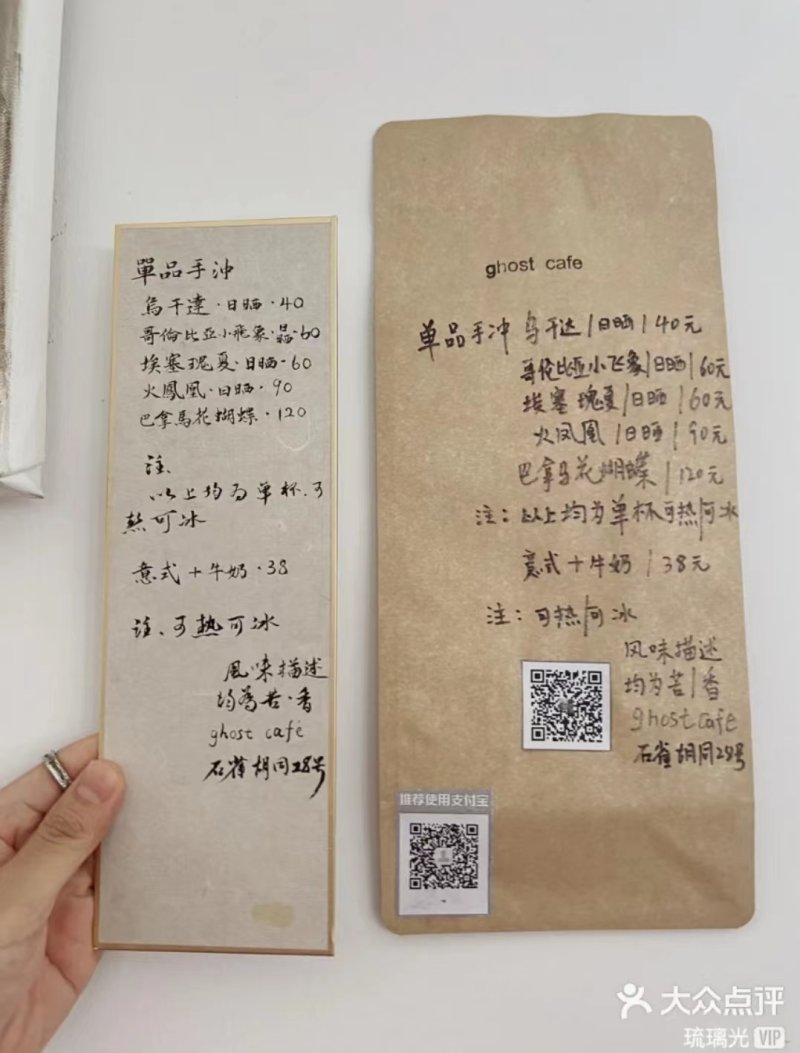 單品手沖
烏干達·日晒·40
哥倫比亞小飛象·日晒·60
埃塞瑰夏·日晒·60
火鳳凰·日晒·90
巴拿馬花蝴蝶·120
注、
以上均为单杯.可
熱可冰
意式+牛奶·38
註、可热可冰
風味描述
均為苦·香
ghost café
石雀胡同28号
ghost cafe
单品手冲 乌干达/日晒/40元
哥伦比亚小飞象/日晒/60元
埃塞瑰夏/日晒/60元
火凤凰/日晒/90元
巴拿马花蝴蝶/120元
注:以上均为单杯可热/可冰
意式+牛奶/38元
注:可热/可冰
风味描述
均为苦/香
ghost cafe
石雀胡同28号
推荐使用支付宝
大众点评
琉璃光 VIP